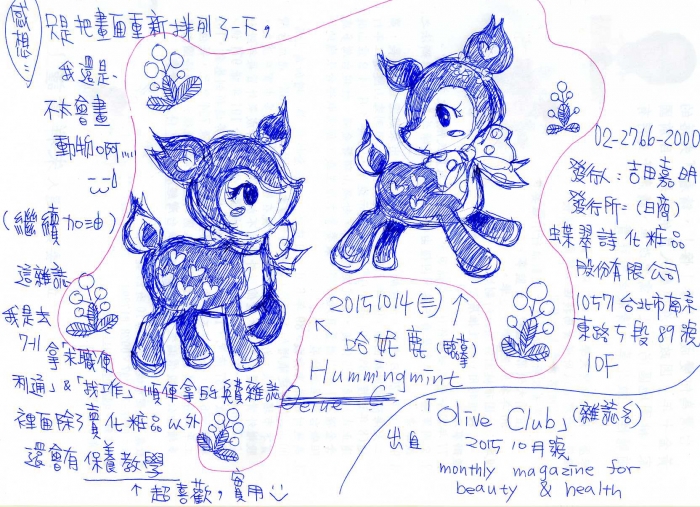 感想：
只是把畫面重新排列了一下，
我還是
不太會畫
動物啊……
(繼續加油)
這雜誌
我是去
7-11 拿「求職便
利通」&「找工作」順便拿的免費雜誌
裡面除了賣化粧品以外
還會有保養教學
↑超喜歡，實用
20151014(三)
哈妮鹿(臨摹)
Hummingmint
02-2766-2000
發行人：吉田嘉明
發行所=(日商)
蝶翠詩化粧品
股份有限公司
10571台北市南京
東路5段89號
10F
出自
「Olive Club」(雜誌名)
2015 10月號
monthly magazine for
beauty & health